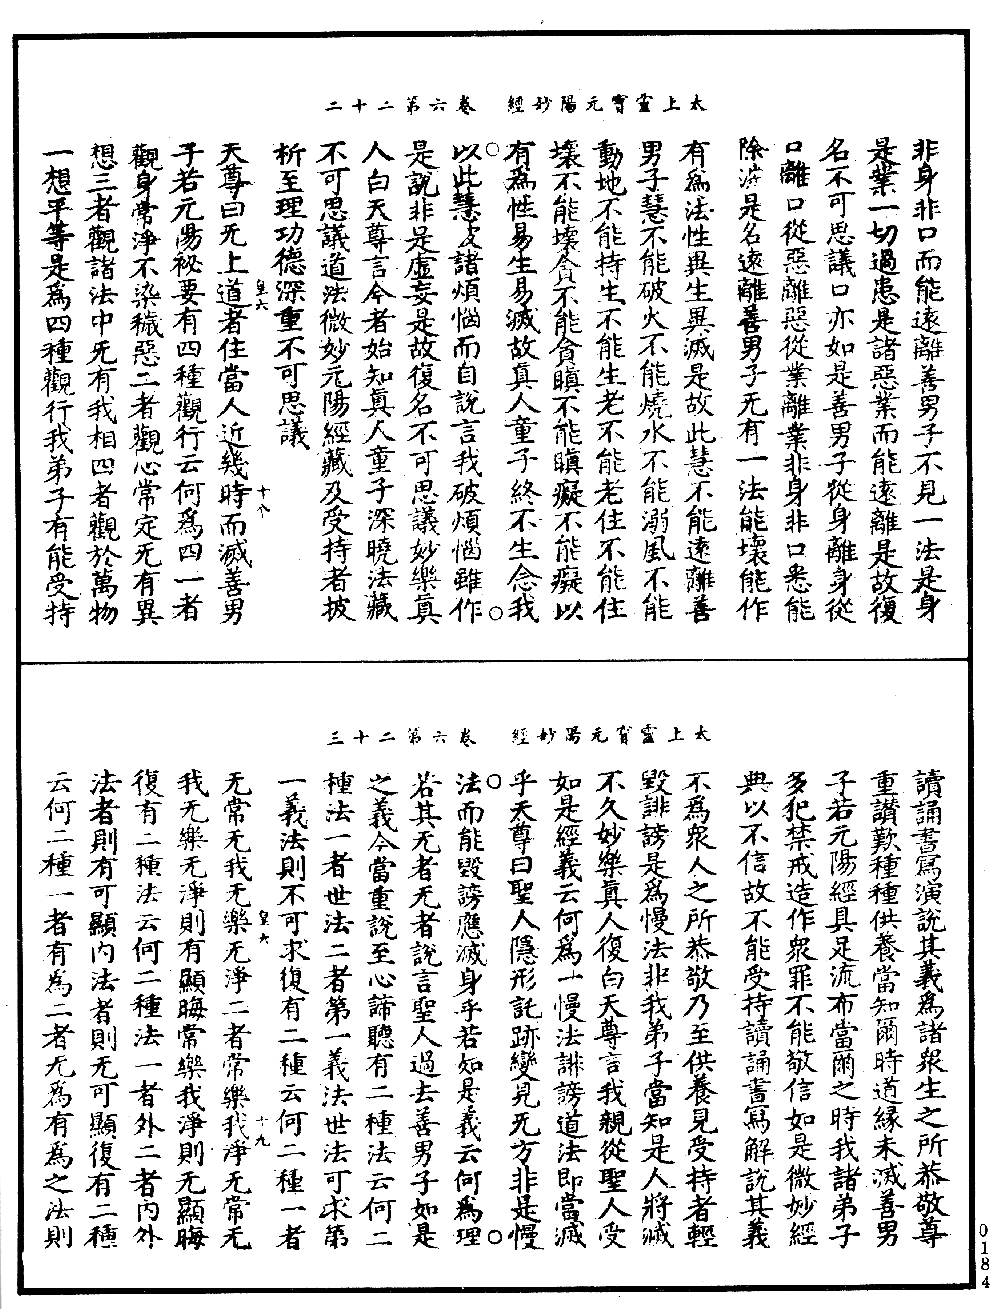 太上靈寳元陽妙經　卷六第二十二
非身非口而能遠離善男子不見一法是身
是業一切過患是諸惡業而能遠離是故復
名不可思議口亦如是善男子從身離身從
口離口從惡離惡從業離業非身非口悉能
除遣是名遠離善男子无有一法能壞能作
有爲法性異生異滅是故此慧不能遠離善
男子慧不能破火不能燒水不能溺風不能
動地不能持生不能生老不能老住不能住
壞不能壞貪不能貪瞋不能瞋癡不能癡以
有爲性易生易滅故真人童子終不生念我
以此慧破諸煩惱而自說言我破煩惱雖作
是說非是虛妄是故復名不可思議妙樂真
人白天尊言今者始知真人童子深曉法藏
不可思議道法微妙元陽經藏及受持者披
析至理功德深重不可思議
皇六
十八
天尊曰无上道者住當人近幾時而滅善男
子若元陽祕要有四種觀行云何爲四一者
觀身常淨不染穢惡二者觀心常定无有異
想三者觀諸法中无有我相四者觀於萬物
一想平等是爲四種觀行我弟子有能受持
太上靈寳元陽妙經　卷六第二十三
讀誦書寫演說其義爲諸衆生之所恭敬尊
重讃歎種種供養當知爾時道緣未滅善男
子若元陽經具足流布當爾之時我諸弟子
多犯禁戒造作衆罪不能敬信如是微妙經
典以不信故不能受持讀誦書寫解說其義
不爲衆人之所恭敬乃至供養見受持者輕
毀誹謗是爲慢法非我弟子當知是人將滅
不久妙樂真人復白天尊言我親從聖人受
如是經義云何爲一慢法誹謗道法即當滅
乎天尊曰聖人隱形託跡變見无方非是慢
法而能毀謗應滅身乎若如是義云何爲理
若其无者无者說言聖人過去善男子如是
之義今當重說至心諦聽有二種法云何二
種法一者世法二者第一義法世法可求第
一義法則不可求復有二種云何二種一者
皇六
十九
无常无我无樂无淨二者常樂我淨无常无
我无樂无淨則有顯晦常樂我淨則无顯晦
復有二種法云何二種法一者外二者內外
法者則有可顯內法者則无可顯復有二種
云何二種一者有為二者无爲有爲之法則
0184